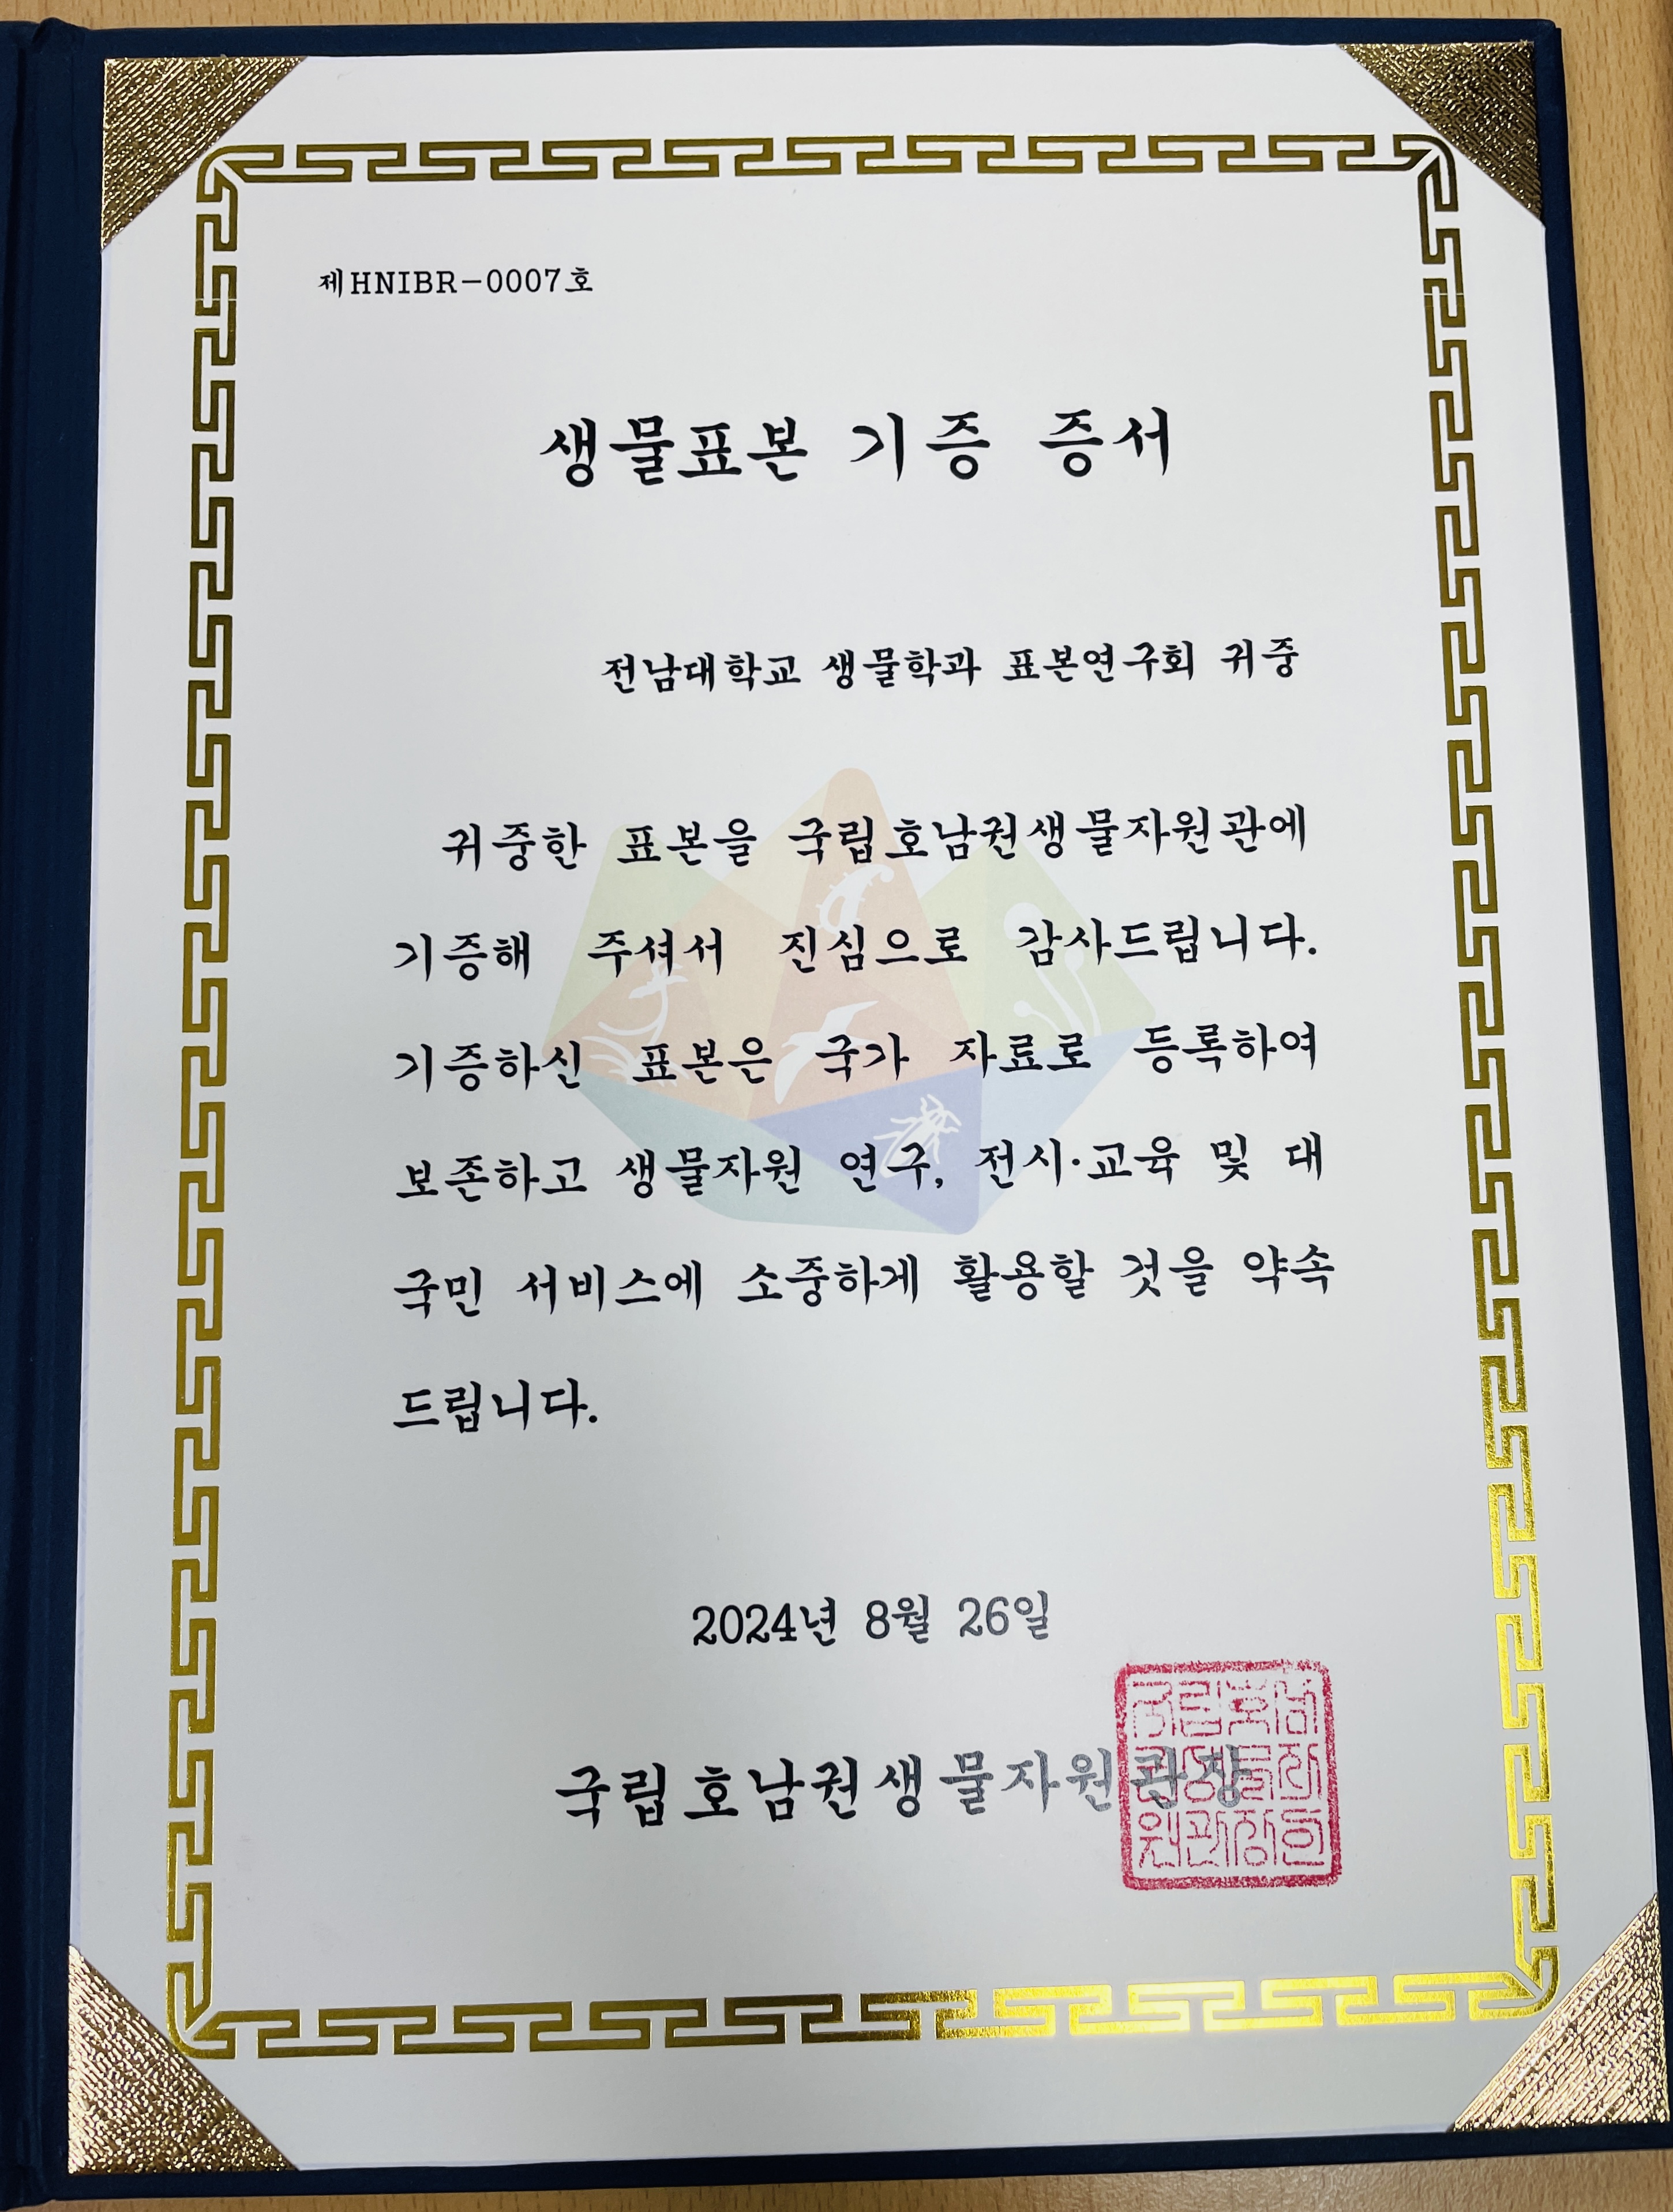 제HNIBR-0007호
생물표본 기증 증서
전남대학교 생물학과 표본연구회 귀중
귀중한 표본을 국립호남권생물자원관에
기증해 주셔서 진심으로 감사드립니다.
기증하신 표본은 국가 자료로 등록하여
보존하고 생물자원 연구, 전시·교육 및 대
국민 서비스에 소중하게 활용할 것을 약속
드립니다.
2024년 8월 26일
국립호남권생물자원관장
국립호남
권생물자
원관장인